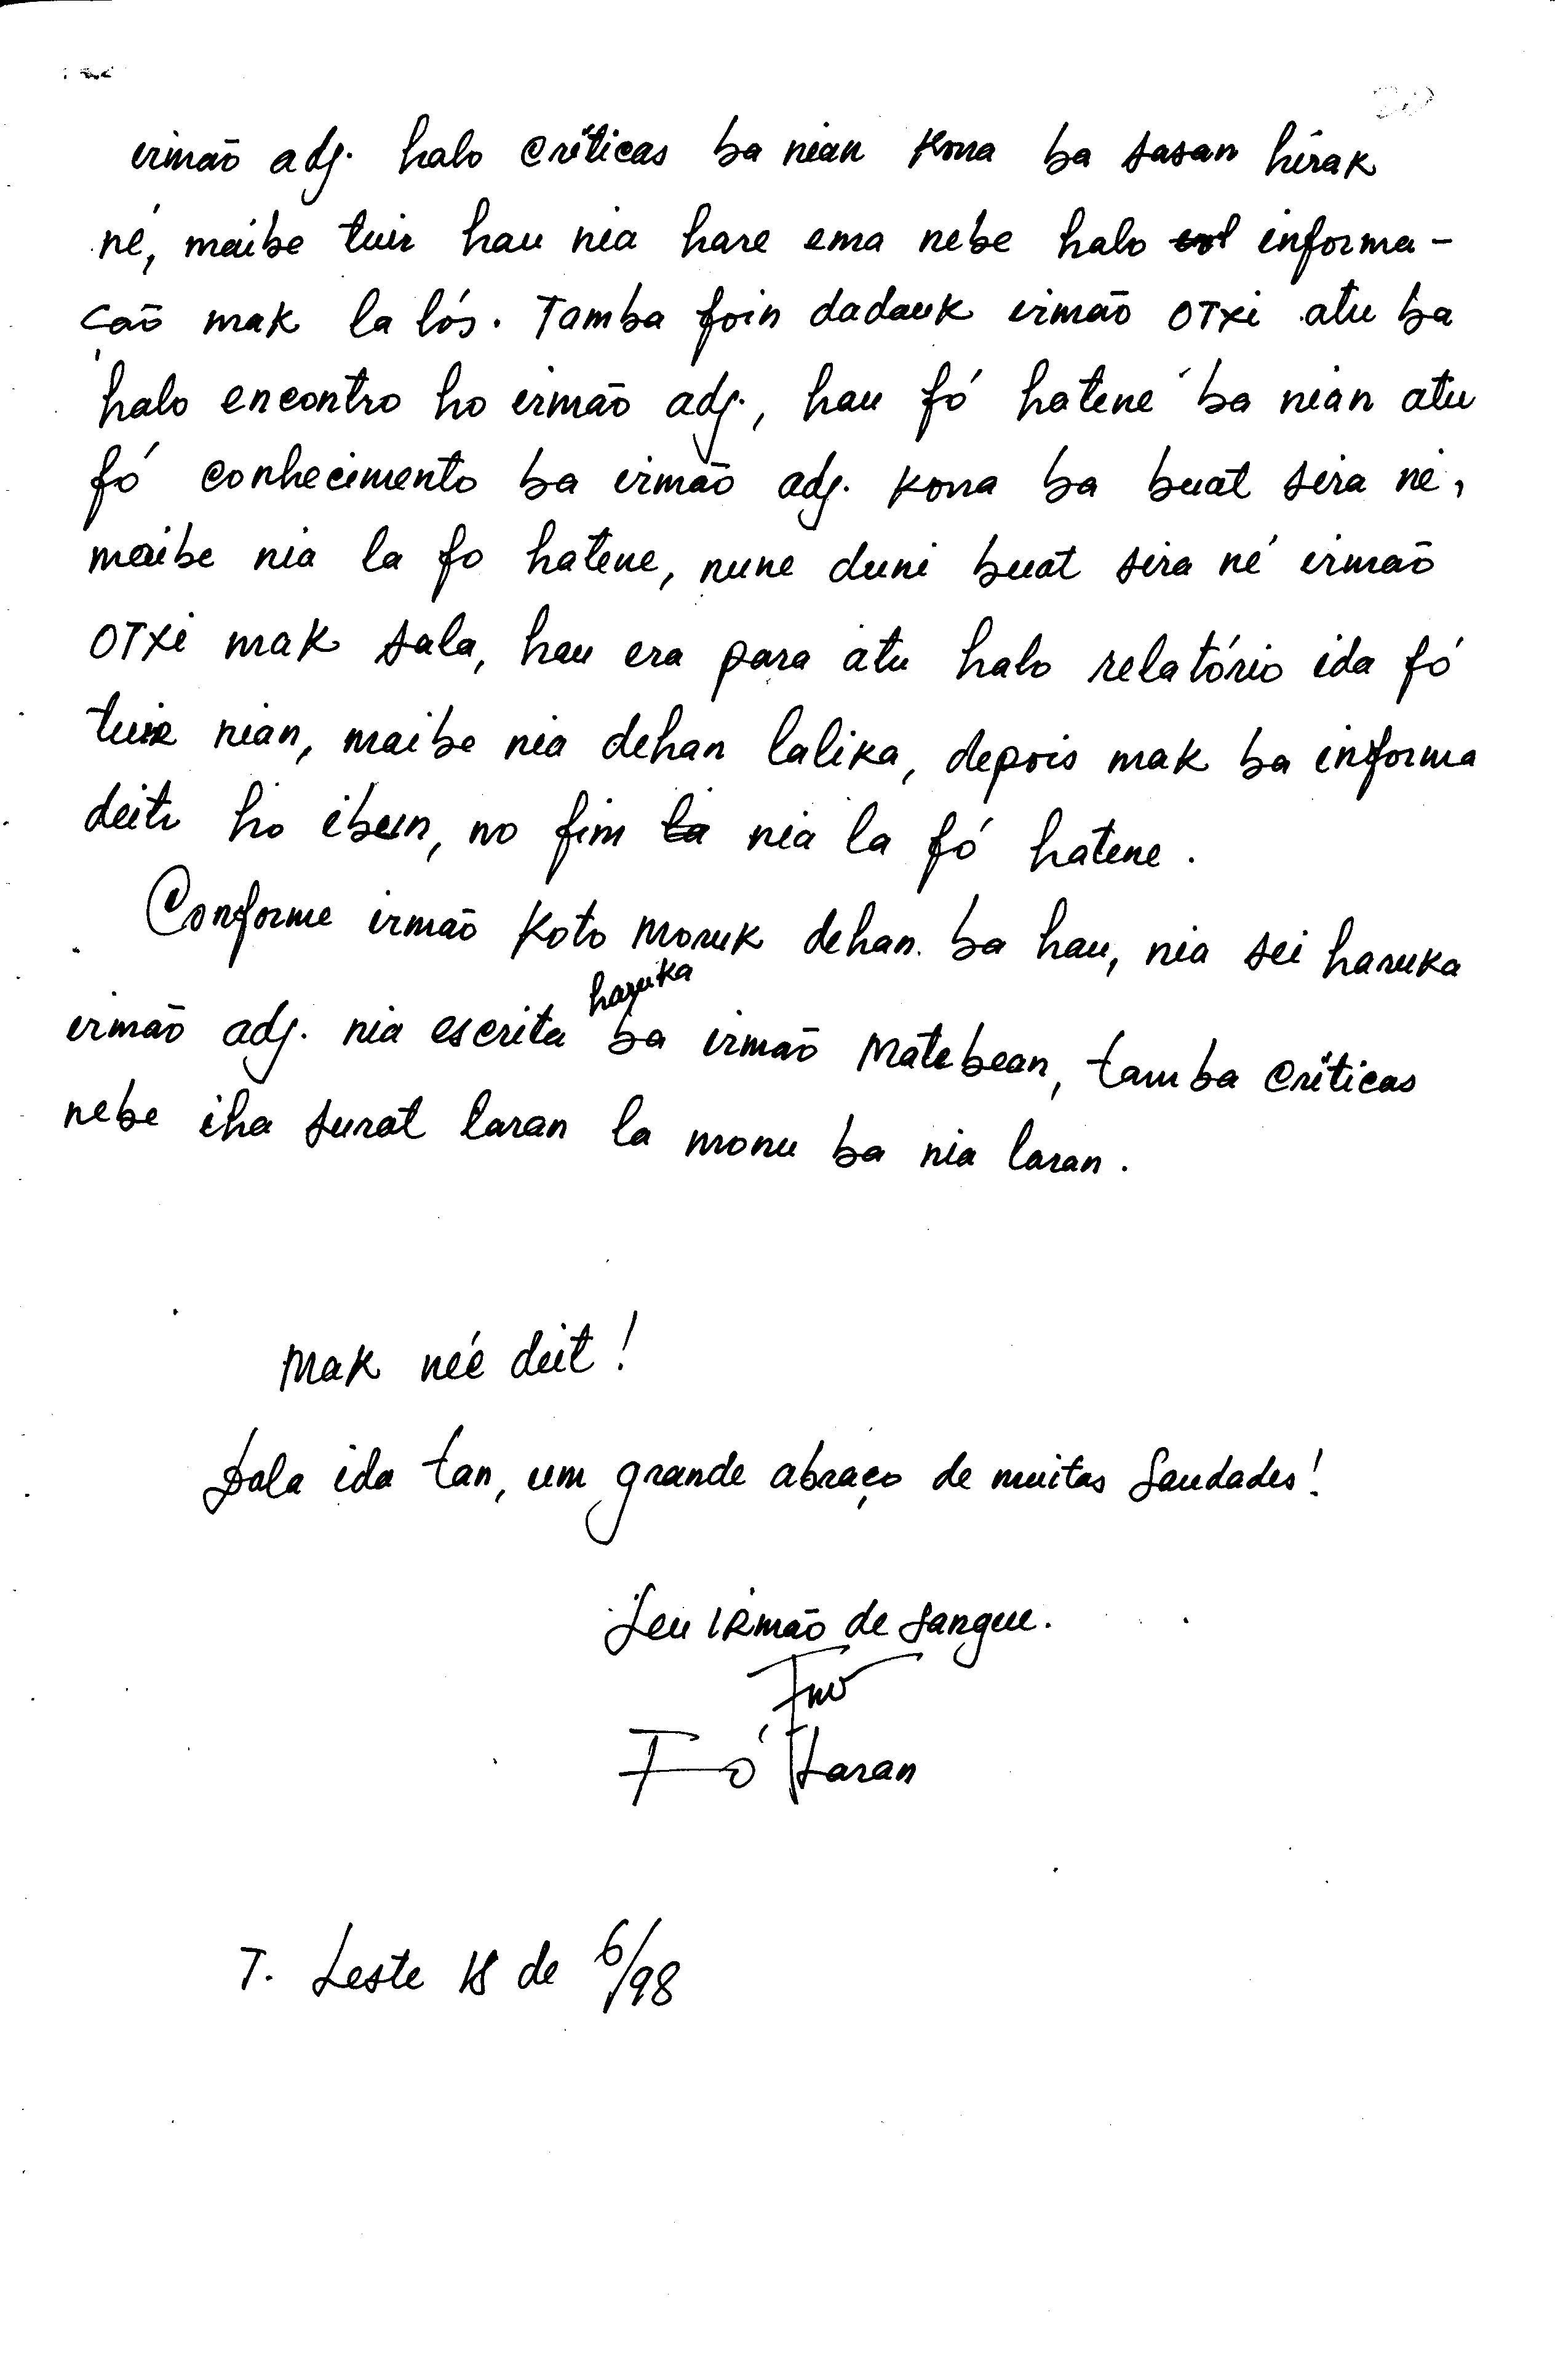 irmão adj. halo críticas ba nian kona ba sasan hirak
né, maibe tuir hau nia hare ema nebe halo informa-
ção mak la lós. Tamba foin dadauk irmão OTXi atu ba
halo encontro ho irmão adj., hau fó hatene ba nian atu
fó conhecimento ba irmão adj. kona ba buat sira né,
maibe nia la fo hatene, nune duni buat sira né irmão
OTXi mak sala, hau era para atu halo relatório ida fó
tuir nian, maibe nia dehan lalika, depois mak ba informa
deit ho ibun, no fim la nia la fó hatene.
Conforme irmão Koto Moruk dehan ba hau, nia sei haruka
haruka
irmão adj. nia escrita ba irmão Matebean, tamba críticas
nebe iha surat laran la monu ba nia laran.
Mak néé deit!
Dala ida tan, um grande abraço de muitas Saudades!
Seu IRmão de sangue.
Fó Laran
T. Leste 18 de 6/98